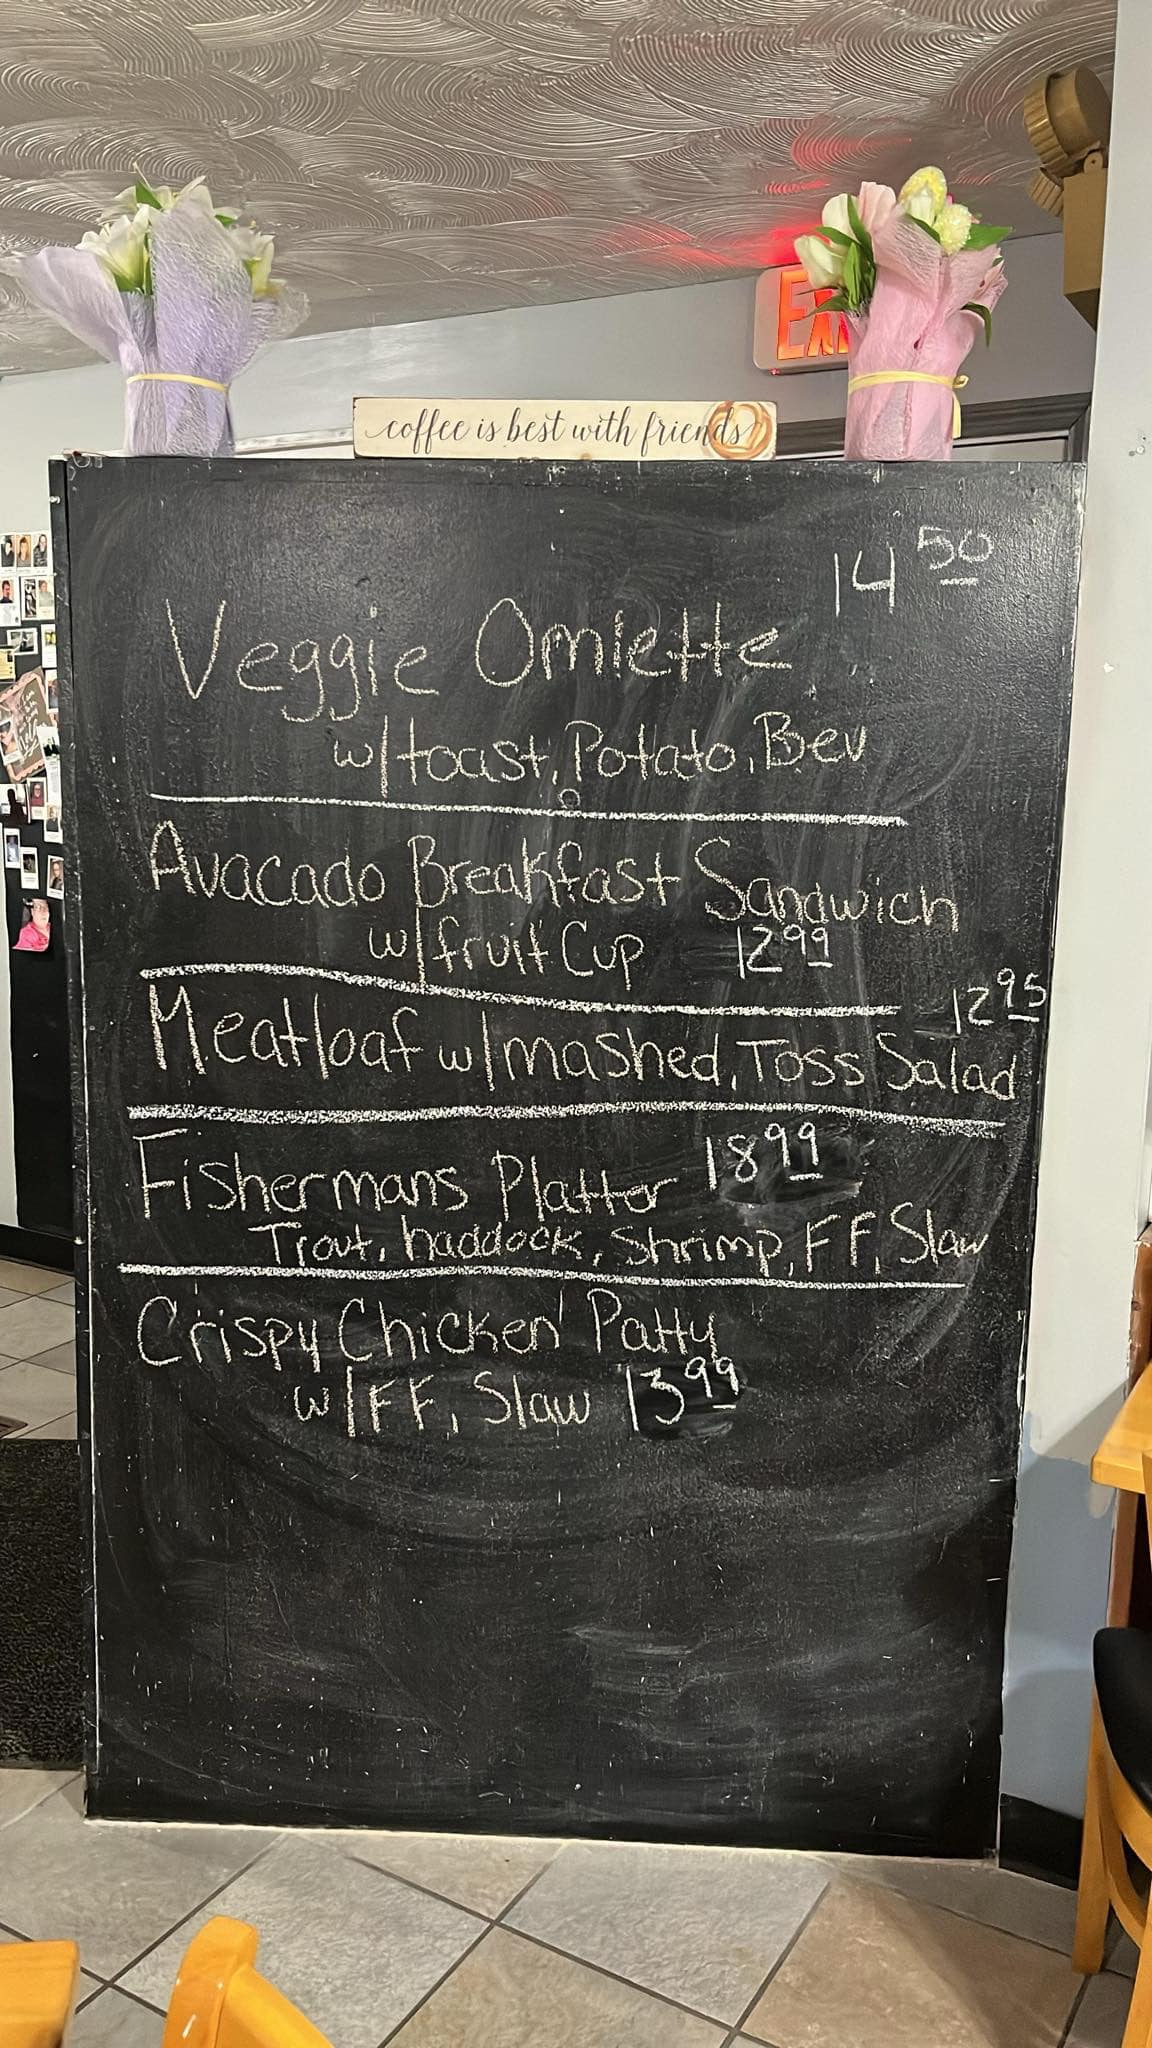 EXI
coffee is best with friends
14 50
Veggie Omlette
w/toast, Potato, Bev
Avacado Breakfast Sandwich
w/fruit Cup 12 99
12 95
Meatloaf w/mashed, Toss Salad
Fishermans Platter 18 99
Trout, haddock, Shrimp, FF, Slaw
Crispy Chicken Patty
w/FF, Slaw 13 99